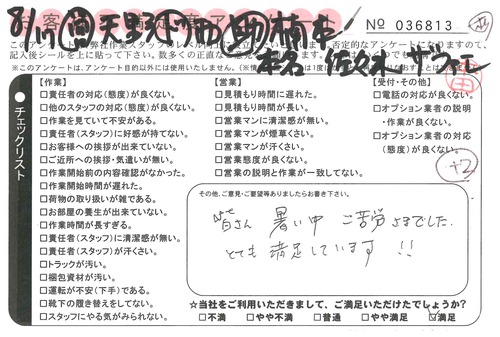 8/17
№ 036813
記入後シールを上に貼って下さい。
チェックリスト
【作業】
□作業者の対応(態度)が良くない。
□他のスタッフの対応(態度)が良くない。
□作業を見ていて不安がある。
□責任者(スタッフ)に好感が持てない。
□お客様への挨拶が出来ていない。
□ご近所への挨拶・気遣いが無い。
□作業開始前の内容確認がなかった。
□作業開始時間が遅れた。
□荷物の取り扱いが雑である。
□お部屋の養生が出来ていない。
□作業時間が長すぎる。
□責任者(スタッフ)に清潔感が無い。
□責任者(スタッフ)が汗くさい。
□トラックが汚い。
□梱包資材が汚い。
□運転が不安(下手)である。
□靴下の履き替えをしてない。
□スタッフにやる気がみられない。
【営業】
□見積もり時間に遅れた。
□見積もり時間が長い。
□営業マンに清潔感が無い。
□営業マンが煙草くさい。
□営業マンが汗くさい。
□営業態度が良くない。
□営業の説明と作業が一致してない。
【受付・その他】
□電話の対応が良くない。
□オプション業者の説明
・作業が良くない。
□オプション業者の対応
(態度)が良くない。
+2
その他、ご意見・ご要望等ありましたらお書き下さい。
皆さん 暑い中 ご苦労さまでした。
とても 満足しています!!
☆当社をご利用いただきまして、ご満足いただけたでしょうか?
□不満 □やや不満 □普通 □やや満足 ☑満足